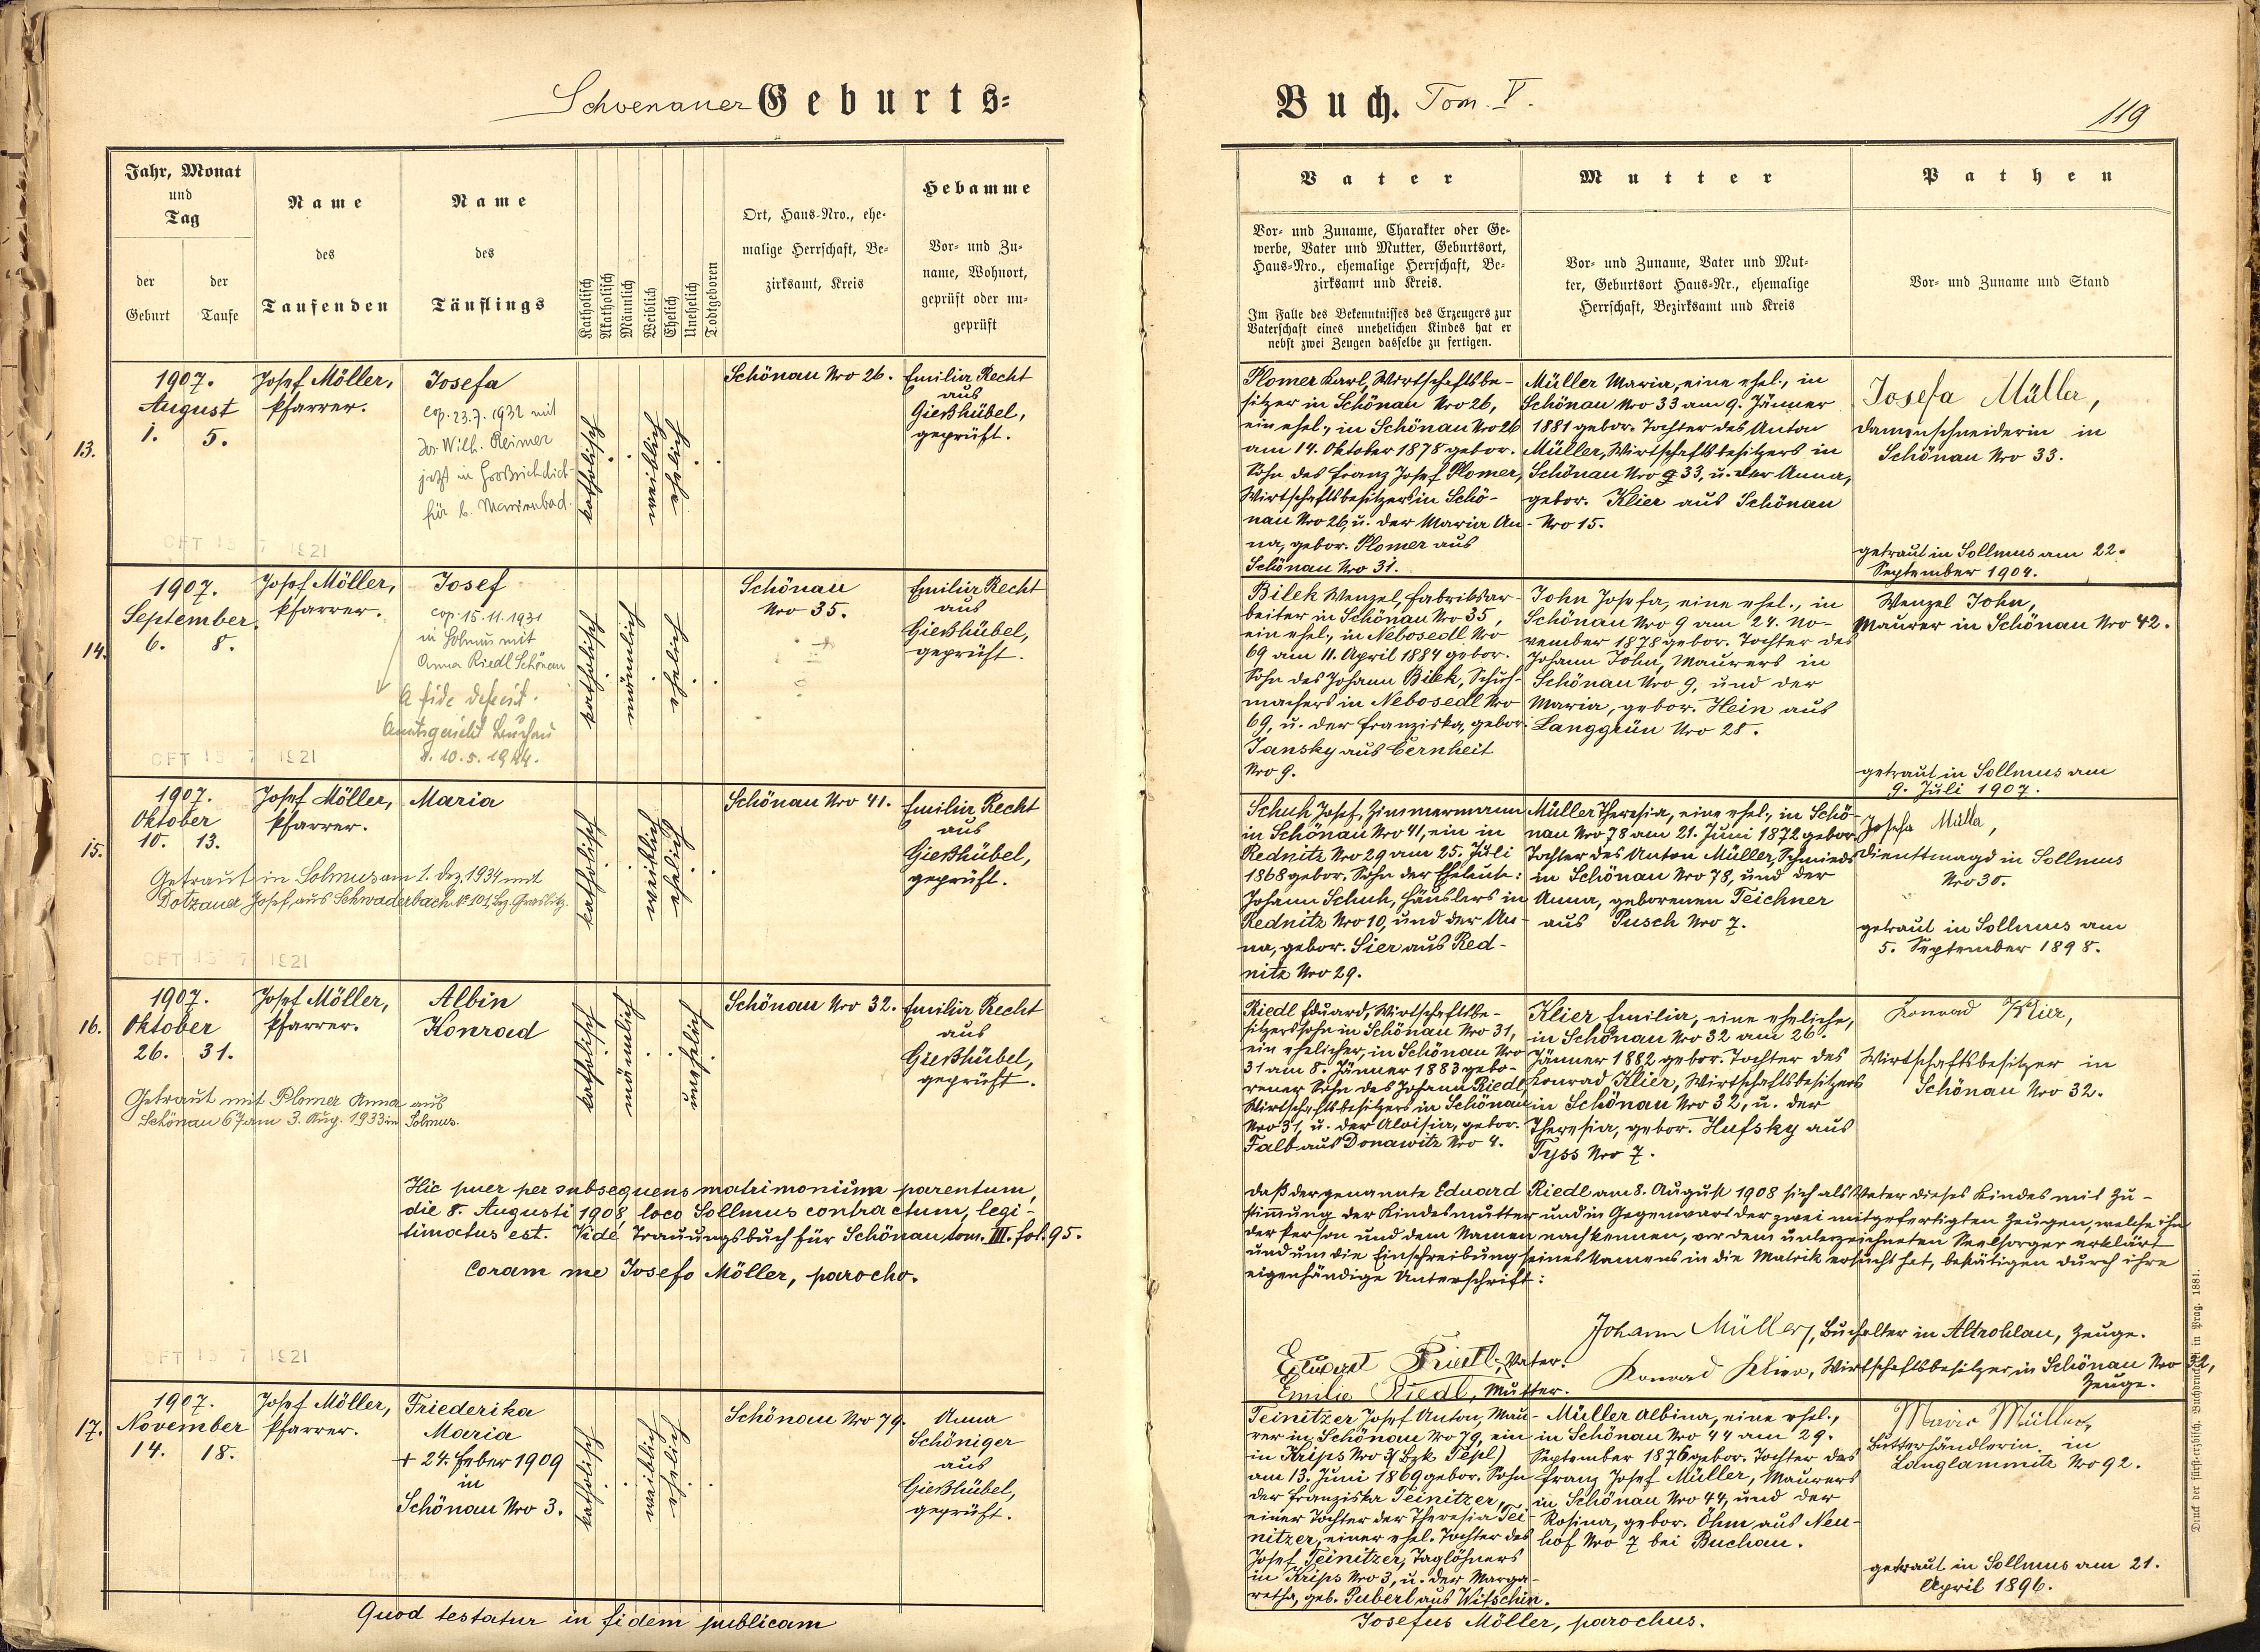 Schoenauer Geburts=
Jahr, Monat
und
Tag
der
Geburt
der
Taufe
Name
des
Taufenden
Name
des
Täuflings
Katholisch
Akatholisch
Männlich
Weiblich
Ehelich
Unehelich
Todtgeboren
Ort, Haus-Nro., ehe-
malige Herrschaft, Be-
zirksamt, Kreis
Hebamme
Vor- und Zu-
name, Wohnort,
geprüft oder un-
geprüft
13.
1907.
August
1. 5.
Josef Möller,
Pfarrer.
Josefa
cop. 23.7.1932 mit
Wilh. Reimer
jetzt in
Marienbad.
katholisch
weiblich
ehelich
Schönau Nro 26.
Emilia Recht
aus
Gießhübel,
geprüft.
OFT 13 7 1921
14.
1907.
September
6. 8.
Josef Möller,
Pfarrer.
Josef
cop. 15.11.1931
in Solmus mit
Anna Riedl Schönau
a fide defecit.
Amtsgericht Luchau
10.5.1944.
katholisch
männlich
ehelich
Schönau
Nro 35.
Emilia Recht
aus
Gießhübel,
geprüft.
OFT 13 7 1921
15.
1907.
Oktober
10. 13.
Josef Möller,
Pfarrer.
Maria
katholisch
weiblich
ehelich
Schönau Nro 41.
Emilia Recht
aus
Gießhübel,
geprüft.
Getraut in Solmus am 1. Dez. 1934 mit
Dotzauer Josef, aus Schwaderbach Nº 101, Bez. Graslitz.
OFT 13 7 1921
16.
1907.
Oktober
26. 31.
Josef Möller,
Pfarrer.
Albin
Konrad
katholisch
männlich
unehelich
Schönau Nro 32.
Emilia Recht
aus
Gießhübel,
geprüft.
Getraut mit Plomer Anna aus
Schönau 67 am 3. Aug. 1933 in Solmus.
Hic puer per subsequens matrimonium parentum,
die 8. Augusti 1908, loco Sollmus contractum, legi-
timatus est. Vide Trauungsbuch für Schönau tom. III. fol. 95.
Coram me Josefo Möller, parocho.
OFT 13 7 1921
17.
1907.
November
14. 18.
Josef Möller,
Pfarrer.
Friederika
Maria
+ 24. Feber 1909
in
Schönau Nro 3.
katholisch
weiblich
ehelich
Schönau Nro 79.
Anna
Schöniger
aus
Gießhübel,
geprüft.
Quod testatur in fidem publicam
Buch. Tom. V.
119
Vater
Vor- und Zuname, Charakter oder Ge-
werbe, Vater und Mutter, Geburtsort,
Haus-Nro., ehemalige Herrschaft, Be-
zirksamt und Kreis.
Im Falle des Bekenntnisses des Erzeugers zur
Vaterschaft eines unehelichen Kindes hat er
nebst zwei Zeugen dasselbe zu fertigen.
Mutter
Vor- und Zuname, Vater und Mut-
ter, Geburtsort Haus-Nr., ehemalige
Herrschaft, Bezirksamt und Kreis
Pathen
Vor- und Zuname und Stand
Plomer Karl, Wirtschaftsbe-
sitzer in Schönau Nro 26,
ein ehel., in Schönau Nro 26
am 14. Oktober 1878 gebor.
Sohn des Franz Josef Plomer,
Wirtschaftsbesitzers in Schö-
nau Nro 26, u. der Maria An-
na, gebor. Plomer aus
Schönau Nro 31.
Müller Maria, eine ehel., in
Schönau Nro 33 am 9. Jänner
1881 gebor. Tochter des Anton
Müller, Wirtschaftsbesitzers in
Schönau Nro 33, u. der Anna,
gebor. Klier aus Schönau
Nro 15.
Josefa Müller,
Damenschneiderin in
Schönau Nro 33.
getraut in Sollmus am 22.
September 1904.
Bilek Wenzel, Fabriksar-
beiter in Schönau Nro 35,
ein ehel., in Nebosedl Nro
69 am 11. April 1884 gebor.
Sohn des Johann Bilek, Schuh-
machers in Nebosedl Nro
69, u. der Franziska, gebor.
Jansky aus Cernheit
Nro 9.
John Josefa, eine ehel., in
Schönau Nro 9 am 24. No-
vember 1878 gebor. Tochter des
Johann John, Maurers in
Schönau Nro 9, und der
Maria, gebor. Hein aus
Langgrün Nro 28.
Wenzel John,
Maurer in Schönau Nro 42.
getraut in Sollmus am
9. Juli 1907.
Schuh Josef, Zimmermann
in Schönau Nro 41, ein in
Rednitz Nro 29 am 25. Juli
1868 gebor. Sohn der Eheleute:
Johann Schuh, Häuslers in
Rednitz Nro 10, und der An-
na, gebor. Sier aus Red-
nitz Nro 29.
Müller Theresia, eine ehel., in Schö-
nau Nro 78 am 21. Juni 1872 gebor.
Tochter des Anton Müller, Schmieds
in Schönau Nro 78, und der
Anna, geborenen Teichner
aus Pusch Nro 7.
Josefa Müller,
Dienstmagd in Sollmus
Nro 30.
getraut in Sollmus am
5. September 1898.
Riedl Eduard, Wirtschaftsbe-
sitzerssohn in Schönau Nro 31,
ein ehelicher, in Schönau Nro
31 am 8. Jänner 1883 gebo-
rener Sohn des Johann Riedl,
Wirtschaftsbesitzers in Schönau
Nro 31, u. der Aloisia, gebor.
Falb aus Donawitz Nro 4.
Klier Emilia, eine eheliche,
in Schönau Nro 32 am 26.
Jänner 1882 gebor. Tochter des
Konrad Klier, Wirtschaftsbesitzers
in Schönau Nro 32, u. der
Theresia, gebor. Hufsky aus
Tyss Nro 7.
Konrad Klier,
Wirtschaftsbesitzer in
Schönau Nro 32.
daß der genannte Eduard Riedl am 8. August 1908 sich als Vater dieses Kindes mit Zu-
stimmung der Kindesmutter und in Gegenwart der zwei mitgefertigten Zeugen, welche ihn
der Person und dem Namen nach kennen, vor dem unterzeichneten Seelsorger erklärt
und um die Einschreibung seines Namens in die Matrik ersucht hat, bestätigen durch ihre
eigenhändige Unterschrift:
Johann Müller, Buchhalter in Altrohlau, Zeuge.
Eduard Riedl, Vater.
Konrad Klier, Wirtschaftsbesitzer in Schönau Nro 32,
Zeuge.
Emilie Riedl, Mutter.
Teinitzer Josef Anton, Mau-
rer in Schönau Nro 79, ein
in Krips Nro 3 (Bzk Tepl)
am 13. Juni 1869 gebor. Sohn
der Franziska Teinitzer,
einer Tochter der Theresia Tei-
nitzer, einer ehel. Tochter des
Josef Teinitzer, Taglöhners
in Krips Nro 3, u. der Marga-
retha, geb. Puberl aus Witschin.
Müller Albina, eine ehel.,
in Schönau Nro 44 am 29.
September 1876 gebor. Tochter des
Franz Josef Müller, Maurers
in Schönau Nro 44, und der
Rosina, gebor. Öhm aus Neu-
hof Nro 7 bei Buchau.
Marie Müller,
Butterhändlerin in
Langlammitz Nro 92.
getraut in Sollmus am 21.
April 1896.
Josefus Möller, parochus.
Druck der fürst-erzbisch. Buchdruckerei in Prag. 1881.